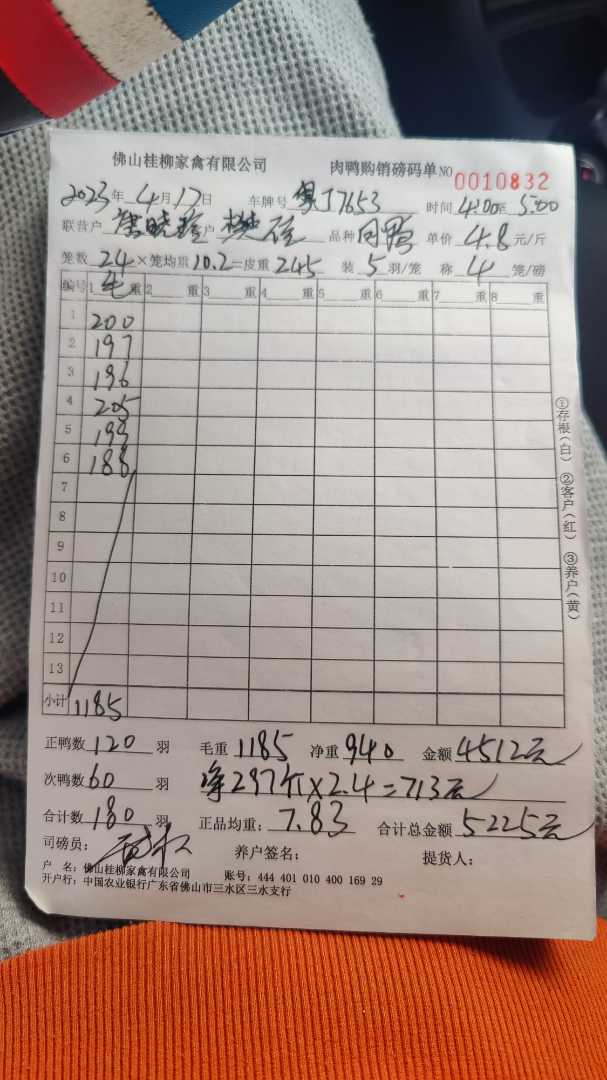 佛山桂柳家禽有限公司 肉鸭购销磅码单 NO 0010832
2023年 4月17日 车牌号 粤J7653 时间 4:00至 5:00
联营户 户 品种 鸭 单价 4.8 元/斤
笼数 24 × 笼均重 10.2 = 皮重 245 装 5 羽/笼 称 4 笼/磅
编号 1 毛 重 2 重 3 重 4 重 5 重 6 重 7 重 8 重
1 200
2 197
3 196
4 205
5 199
6 188
7
8
9
10
11
12
13
小计 1185
①存根(白) ②客户(红) ③养户(黄)
正鸭数 120 羽 毛重 1185 净重 940 金额 4512元
次鸭数 60 羽 净297斤×2.4=713元
合计数 180 羽 正品均重: 7.83 合计总金额 5225元
司磅员: 养户签名: 提货人:
户 名: 佛山桂柳家禽有限公司 账号: 444 401 010 400 169 29
开户行: 中国农业银行广东省佛山市三水区三水支行